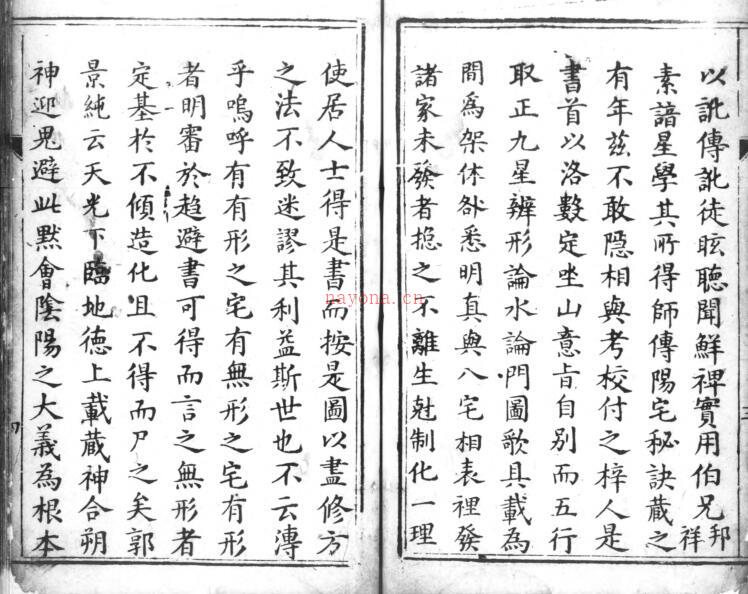 以訛傳訛徒眩聽聞鮮裨實用伯兄邦祥
素諳星學其所得師傳陽宅秘訣蔵之
有年茲不敢隠相與考校付之梓人是
書首以洛數定坐山意旨自別而五行
取正九星辨形論水論門圖歌具載為
間為架休咎悉明真與八宅相表裡發
諸家未發者揔之不離生尅制化一理
使居人士得是書而按是圖以盡修方
之法不致迷謬其利益斯世也不云溥
乎嗚呼有有形之宅有無形之宅有形
者明審於趋避書可得而言之無形者
定基於不傾造化且不得而尸之矣郭
景純云天光下臨地德上載蔵神合朔
神迎鬼避此黙會陰陽之大義為根本
nayona.cn